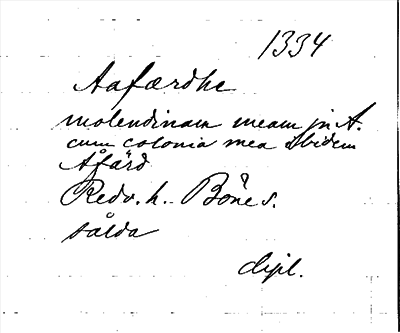 1334
Aafærdhe
molendinam meam in A.
cum colonia mea ibidem
Åfärd
Redv. h. Böne s.
sålda
dipl.